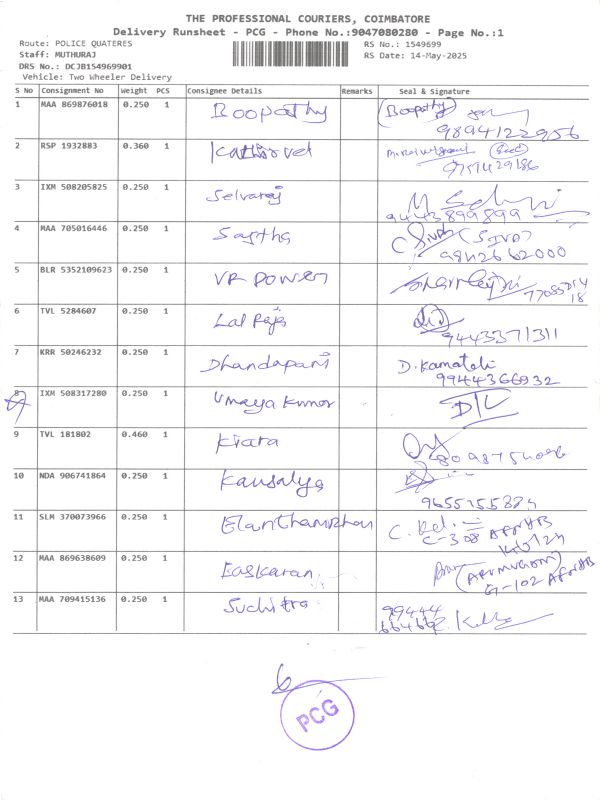 THE PROFESSIONAL COURIERS, COIMBATORE
Delivery Runsheet - PCG - Phone No.:9047080280 - Page No.:1
Route: POLICE QUATERES
Staff: MUTHURAJ
DRS No.: DCJB154969901
Vehicle: Two Wheeler Delivery
RS No.: 1549699
RS Date: 14-May-2025
S No Consignment No Weight PCS Consignee Details Remarks Seal & Signature
1 MAA 869876018 0.250 1 Boopathy (Boopathy)
9894122956
2 RSP 1932883 0.360 1 Kathirvel
9751429186
3 IXM 508205825 0.250 1 Selvaraj M
9443899899
4 MAA 705016446 0.250 1 Sastha (SIVA)
9842662000
5 BLR 5352109623 0.250 1 VR Power
6 TVL 5284607 0.250 1 Lal Raja
9443371311
7 KRR 50246232 0.250 1 Dhandapani D. Kamatchi
9944366932
8 IXM 508317280 0.250 1 Umaya Kumar D/L
9 TVL 181802 0.460 1 Kiara
10 NDA 906741864 0.250 1 Kausalya
11 SLM 370073966 0.250 1 Elanthamizhan C.
C-308
12 MAA 869638609 0.250 1 Baskaran (ARUMUGAM)
G-102
13 MAA 709415136 0.250 1 Suchitra 99444
6
PCG